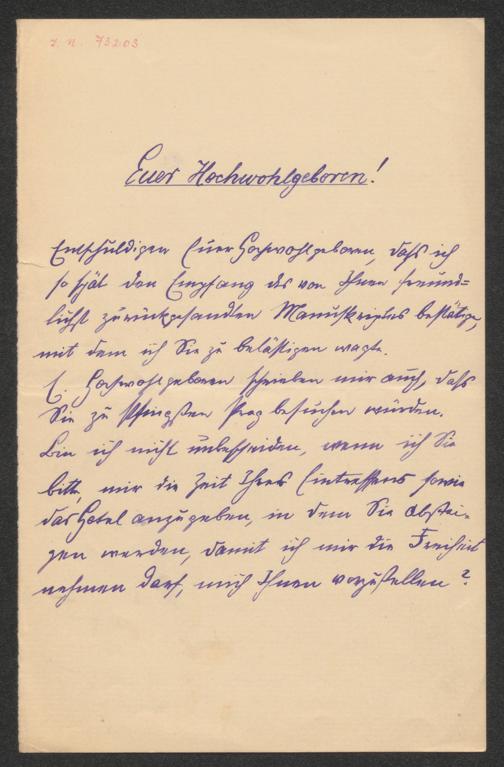 J. N. 73203
Euer Hochwohlgeboren!
Entschuldigen Euer Hochwohlgeboren, daß ich
so spät den Empfang des von Ihnen freund=
lichst zurückgesandten Manuskriptes bestätige,
mit dem ich Sie zu belästigen wagte.
E. Hochwohlgeboren schrieben mir auch, daß
Sie zu Pfingsten Prag besuchen würden.
Bin ich nicht unbescheiden, wenn ich Sie
bitte, mir die Zeit Ihres Eintreffens sowie
das Hotel anzugeben, in dem Sie abstei-
gen werden, damit ich mir die Freiheit
nehmen darf, mich Ihnen vorzustellen?